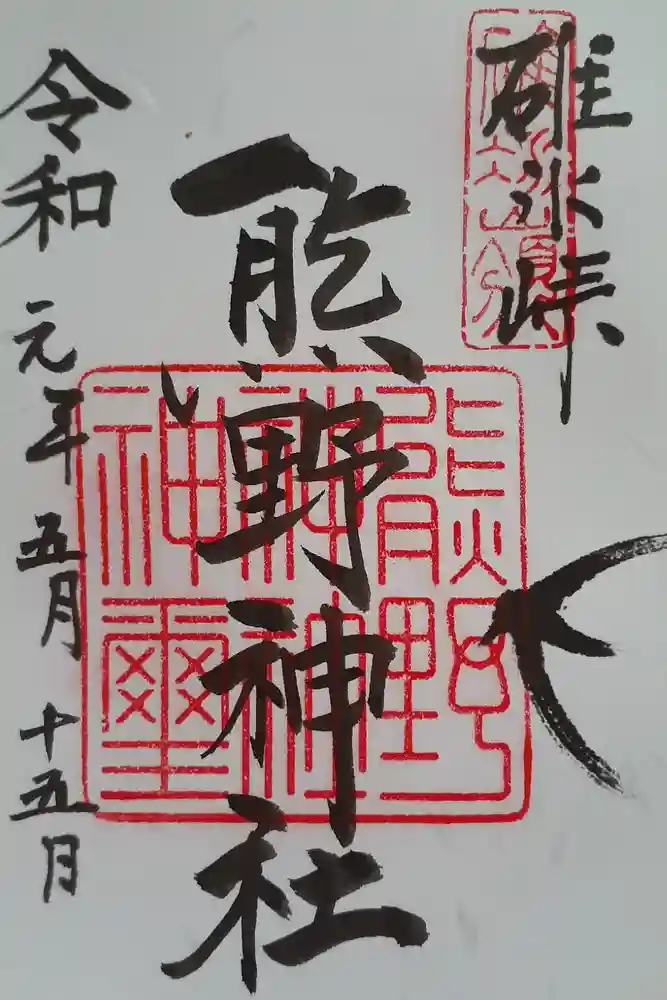 碓氷峠
熊野神社
令和元年五月十五日
熊野
神社
神璽